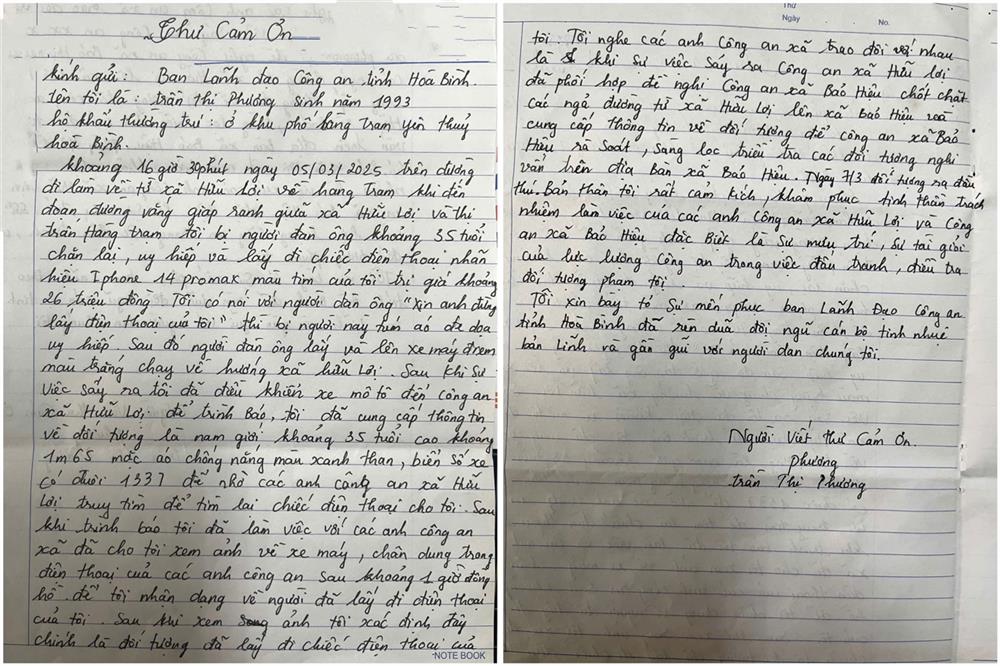 Thư Cảm Ơn
kính gửi: Ban Lãnh đạo Công an tỉnh Hoà Bình
tên tôi là: trần thị Phương sinh năm 1993
hộ khẩu thường trú: ở khu phố bằng Trạm yên thuỷ
hoà Bình.
khoảng 16 giờ 30phút ngày 05/03/2025 trên đường
đi làm về từ xã Hữu lợi về hàng Trạm khi đến
đoạn đường vắng giáp ranh giữa xã Hữu Lợi và thị
trấn Hàng trạm tôi bị người đàn ông khoảng 35 tuổi
chặn lại, uy hiếp và lấy đi chiếc điện thoại nhãn
hiệu Iphone 14 promax màu tím của tôi trị giá khoảng
26 triệu đồng Tôi có nói với người đàn ông "xin anh đừng
lấy điện thoại của tôi" thì bị người này túm áo đe doạ
uy hiếp Sau đó người đàn ông lấy và lên xe máy điện
màu trắng chạy về hướng xã hữu Lợi. Sau khi sự
việc sảy ra tôi đã điều khiển xe mô tô đến công an
xã Hữu Lợi để trình Báo, tôi đã cung cấp thông tin
về đối tượng là nam giới khoảng 35 tuổi cao khoảng
1m65 mặc áo chống nắng màu xanh than, biển số xe
có đuôi 1337 để nhờ các anh công an xã Hữu
Lợi truy tìm để tìm lại chiếc điện thoại cho tôi. Sau
khi trình báo tôi đã làm việc với các anh công an
xã đã cho tôi xem ảnh về xe máy, chân dung trong
điện thoại của các anh công an sau khoảng 1 giờ đồng
hồ để tôi nhận dạng về người đã lấy đi điện thoại
của tôi. Sau khi xem song ảnh tôi xác định đây
chính là đối tượng đã lấy đi chiếc điện thoại của
NOTE BOOK
Thứ
Ngày No.
tôi. Tôi nghe các anh Công an xã trao đổi với nhau
là khi sự việc sảy ra Công an xã Hữu lợi
đã phối hợp đề nghị Công an xã Bảo Hiệu chốt chặt
các ngả đường từ xã Hữu Lợi lên xã bảo Hiệu và
cung cấp thông tin về đối tượng để công an xã Bảo
Hiệu rà soát, sàng lọc triều tra các đối tượng nghi
vấn trên địa Bàn xã Bảo Hiệu. Ngày 7/3 đối tượng ra đầu
thú. Bản thân tôi rất cảm kích, khâm phục tinh thần trách
nhiệm làm việc của các anh Công an xã Hữu Lợi và Công
an xã Bảo Hiệu đặc Biệt là sự mưu trí, sự tài giỏi
của lực lượng Công an trong việc đấu tranh, điều tra
đối tượng phạm tội.
Tôi xin bày tỏ sự mến phục ban Lãnh Đạo Công an
tỉnh Hoà Bình đã rèn duã đội ngũ cán bộ tinh nhuệ
bản Lĩnh và gần gũi với người dân chúng tôi.
Người Viết thư Cảm Ơn.
Phương
trần Thị Phương